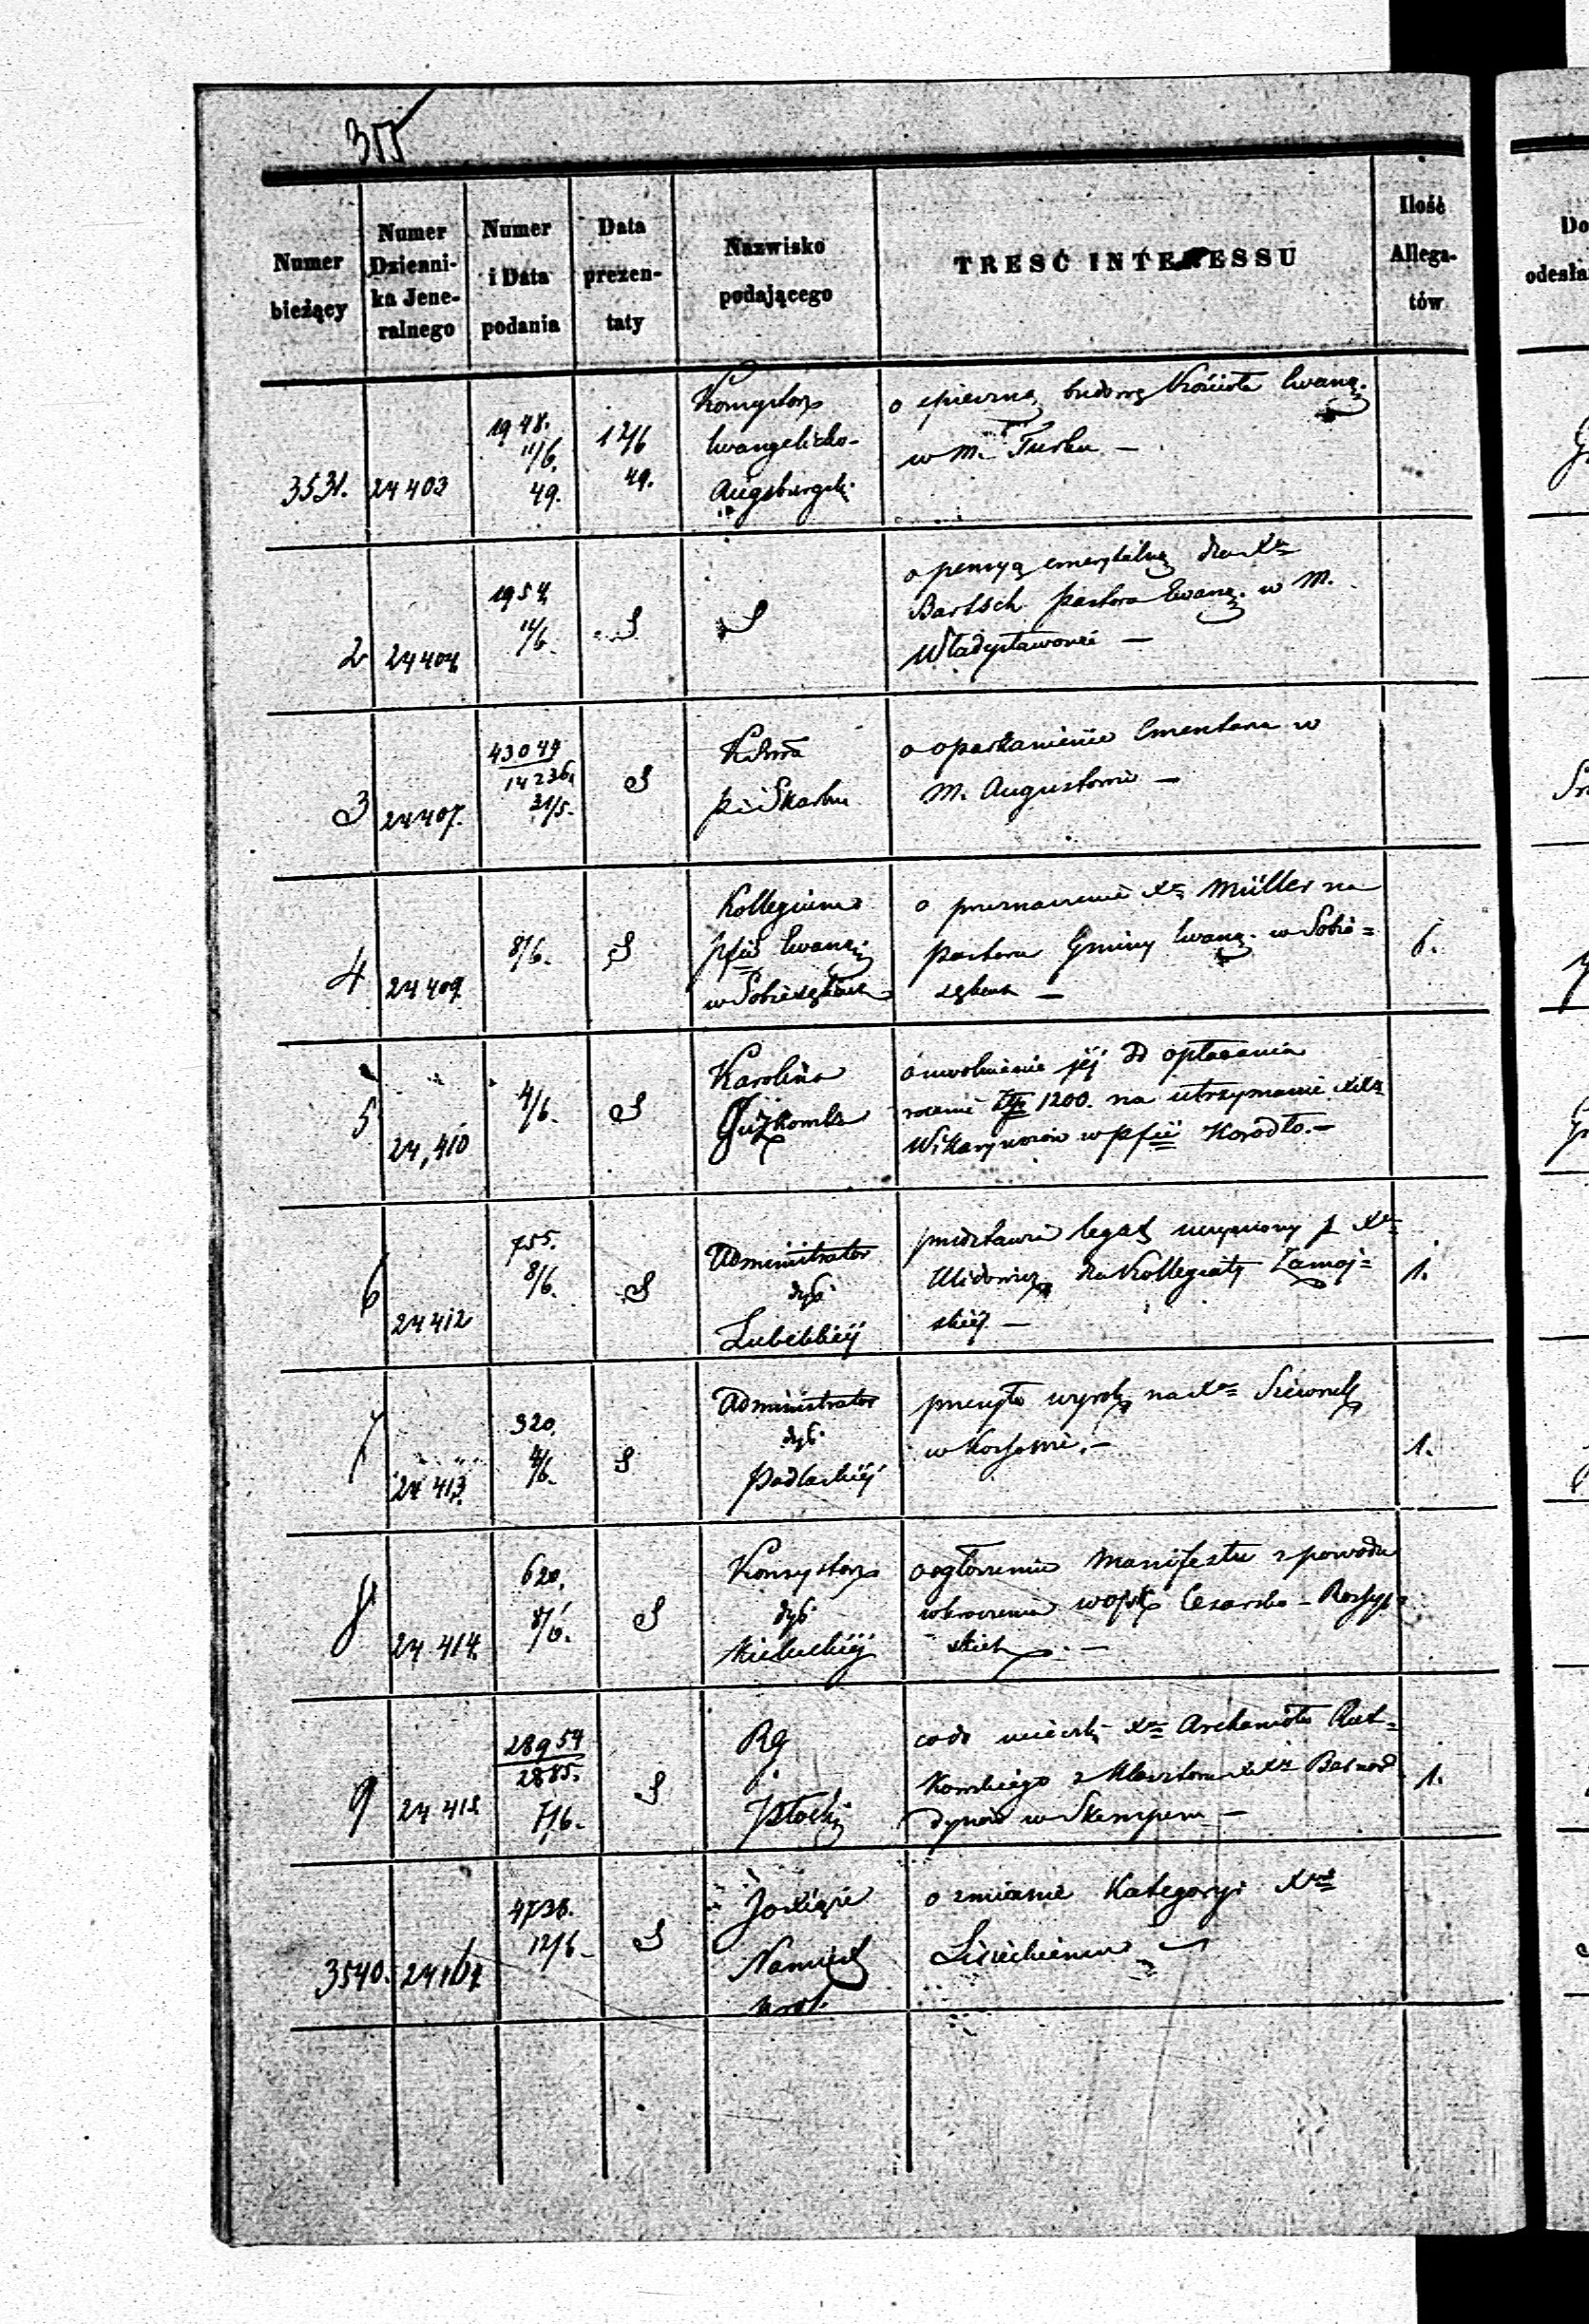 355
Numer bieżący
Numer Dzienni-ka Jene-ralnego
Numer i Data podania
Data prezen-taty
Nazwisko podającego
TRESĆ INTERESSU
Ilość Allega-tów
Do
odesła
3531. 24403
1948. 11/6. 49.
12/6 49.
Konsystorz
Ewangelicko-
Augsburgski
o spieszną budowę Kościoła Ewang.
w M. Turku —
2 24404
1954 11/6.
S
S
o pensyą emerytalną dla Xa
Bartsch pastora Ewang. w M.
Władysławowie —
3 24407.
43049
14236
31/5.
S
pi Skarbu
o oparkanienie Cmentarza w
M. Augustowie —
4 24409
8/6.
S
Kollegium
pfii Ewang.
w Sobieszękach
o przeznaczenie Xa Müller na
pastora Gminy Ewang. w Sobie=
szękach —
6.
5 24,410
4/6.
S
Karolina
o uwolnienie jéj od opłacania
rocznie 1200. na utrzymanie
Wikaryuszów w pfii Horodło. —
6 24412
755.
8/6.
S
Administrator
dyé.
Lubelskiéj
przedstawia legat uczyniony p Xa
dla Kollegiaty Zamoj=
skiéj —
1.
7 24413.
320.
4/6.
S
Administrator
dyé.
Podlaskiéj
przesyła wyrok na Xa
w —
1.
8 24.414.
620.
8/6.
S
Konsystorz
dyé.
Kieleckiéj
o ogłoszeniu Manifestu z powodu
wkroczenia wojsk Cesarsko-Rossyj=
skich. —
9 24415
28954
2885.
7/6.
S
Rg
Płocki
co do ucieczki Xa Archanioła Rut=
kowskiego z Klasztoru XX Bernar
dynów w Skempem —
1.
3540.
4738.
12/6.
S
Xiąże
Namiest
Król.
o zmianie Kategoryi Xdza